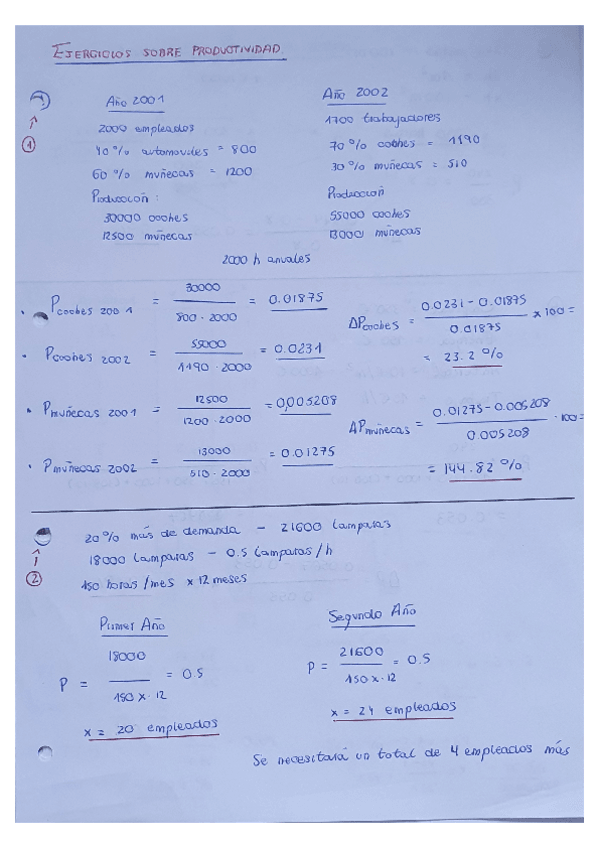 EJERCICIOS SOBRE PRODUCTIVIDAD
1
Año 2001
2000 empleados
40% automoviles = 800
60% muñecas = 1200
Producción:
30000 coches
12500 muñecas
Año 2002
1700 trabajadores
70% coches = 1190
30% muñecas = 510
Producción
55000 coches
13000 muñecas
2000 h anuales
• Pcoches 2001 = 30000 / 800 · 2000 = 0.01875
• Pcoches 2002 = 55000 / 1190 · 2000 = 0.0231
ΔPcoches = 0.0231 - 0.01875 / 0.01875 x 100 =
= 23.2%
• Pmuñecas 2001 = 12500 / 1200 · 2000 = 0,005208
• Pmuñecas 2002 = 13000 / 510 · 2000 = 0.01275
ΔPmuñecas = 0.01275 - 0.005208 / 0.005208 · 100 =
= 144.82%
2
20% más de demanda - 21600 lamparas
18000 lamparas - 0.5 lamparas/h
150 horas/mes x 12 meses
Primer Año
P = 18000 / 150 x · 12 = 0.5
x = 20 empleados
Segundo Año
P = 21600 / 150 x · 12 = 0.5
x = 24 empleados
Se necesitará un total de 4 empleados más